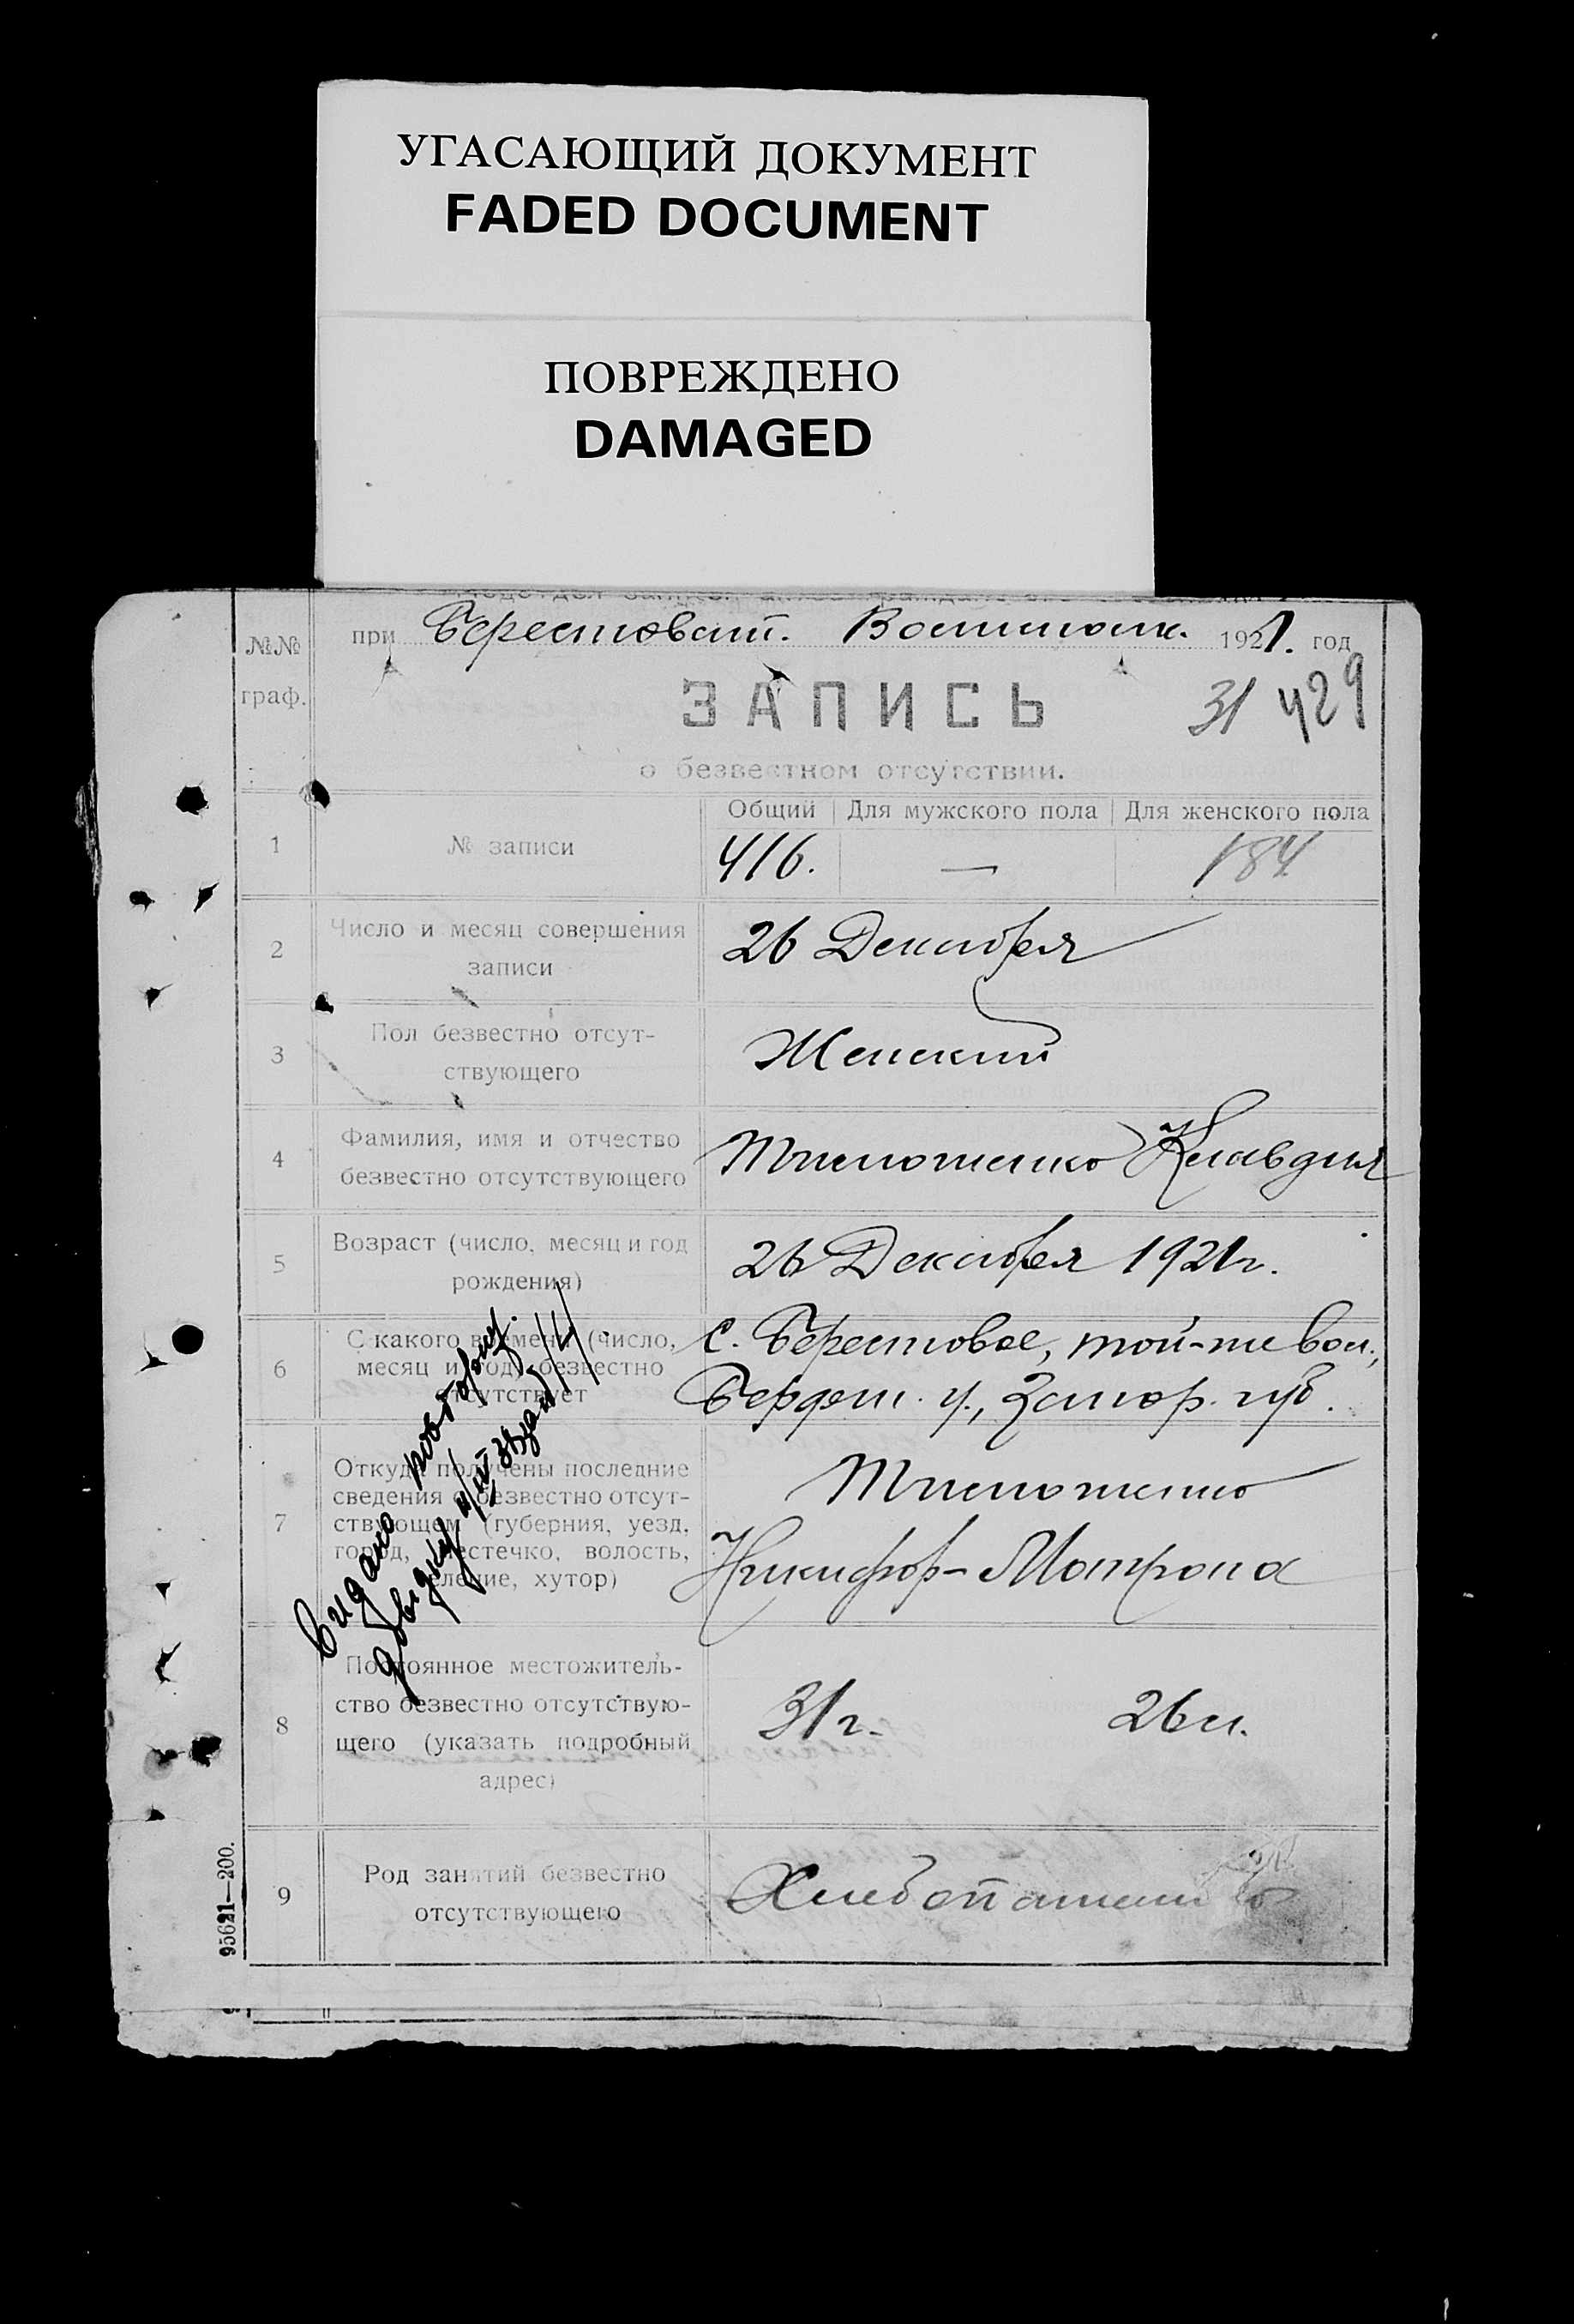 УГАСАЮЩИЙ ДОКУМЕНТ
FADED DOCUMENT
ПОВРЕЖДЕНО
DAMAGED
№№ граф.
при Берестоват. 1921. год
ЗАПИСЬ
31 429
о безвестном отсутствии.
Общий Для мужского пола Для женского пола
1 № записи 416. — 184
2 Число и месяц совершения
записи
26 Декабря
3 Пол безвестно отсут-
ствующего
Женский
4 Фамилия, имя и отчество
безвестно отсутствующего
Клавдия
5 Возраст (число, месяц и год
рождения)
26 Декабря 1921г.
6 С какого времени (число,
месяц и год) безвестно
отсутствует
с. Берестовое, той-же вол.,
Бердян. у., Запор. губ.
7 Откуда получены последние
сведения о безвестно отсут-
ствующем (губерния, уезд,
город, местечко, волость,
селение, хутор)
Никифор-Матрона
8 Постоянное местожитель-
ство безвестно отсутствую-
щего (указать подробный
адрес)
31г. 26л.
9 Род занятий безвестно
отсутствующего
Хлебопашество
Видано повторну
95621—200.